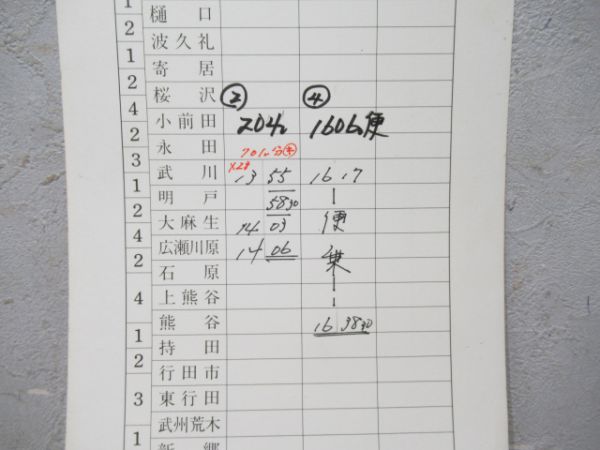 1
樋口
2
波久礼
1
寄居
2
桜沢 ② ④
4
小前田 204レ 1606レ便
2
永田
3
武川 13 55 16 17
1
明戸 58 30
2
大麻生 14 03 便
4
広瀬川原 14 06 乗
2
石原
4
上熊谷
熊谷 16 38 30
1
持田
2
行田市
3
東行田
武州荒木
1
新郷